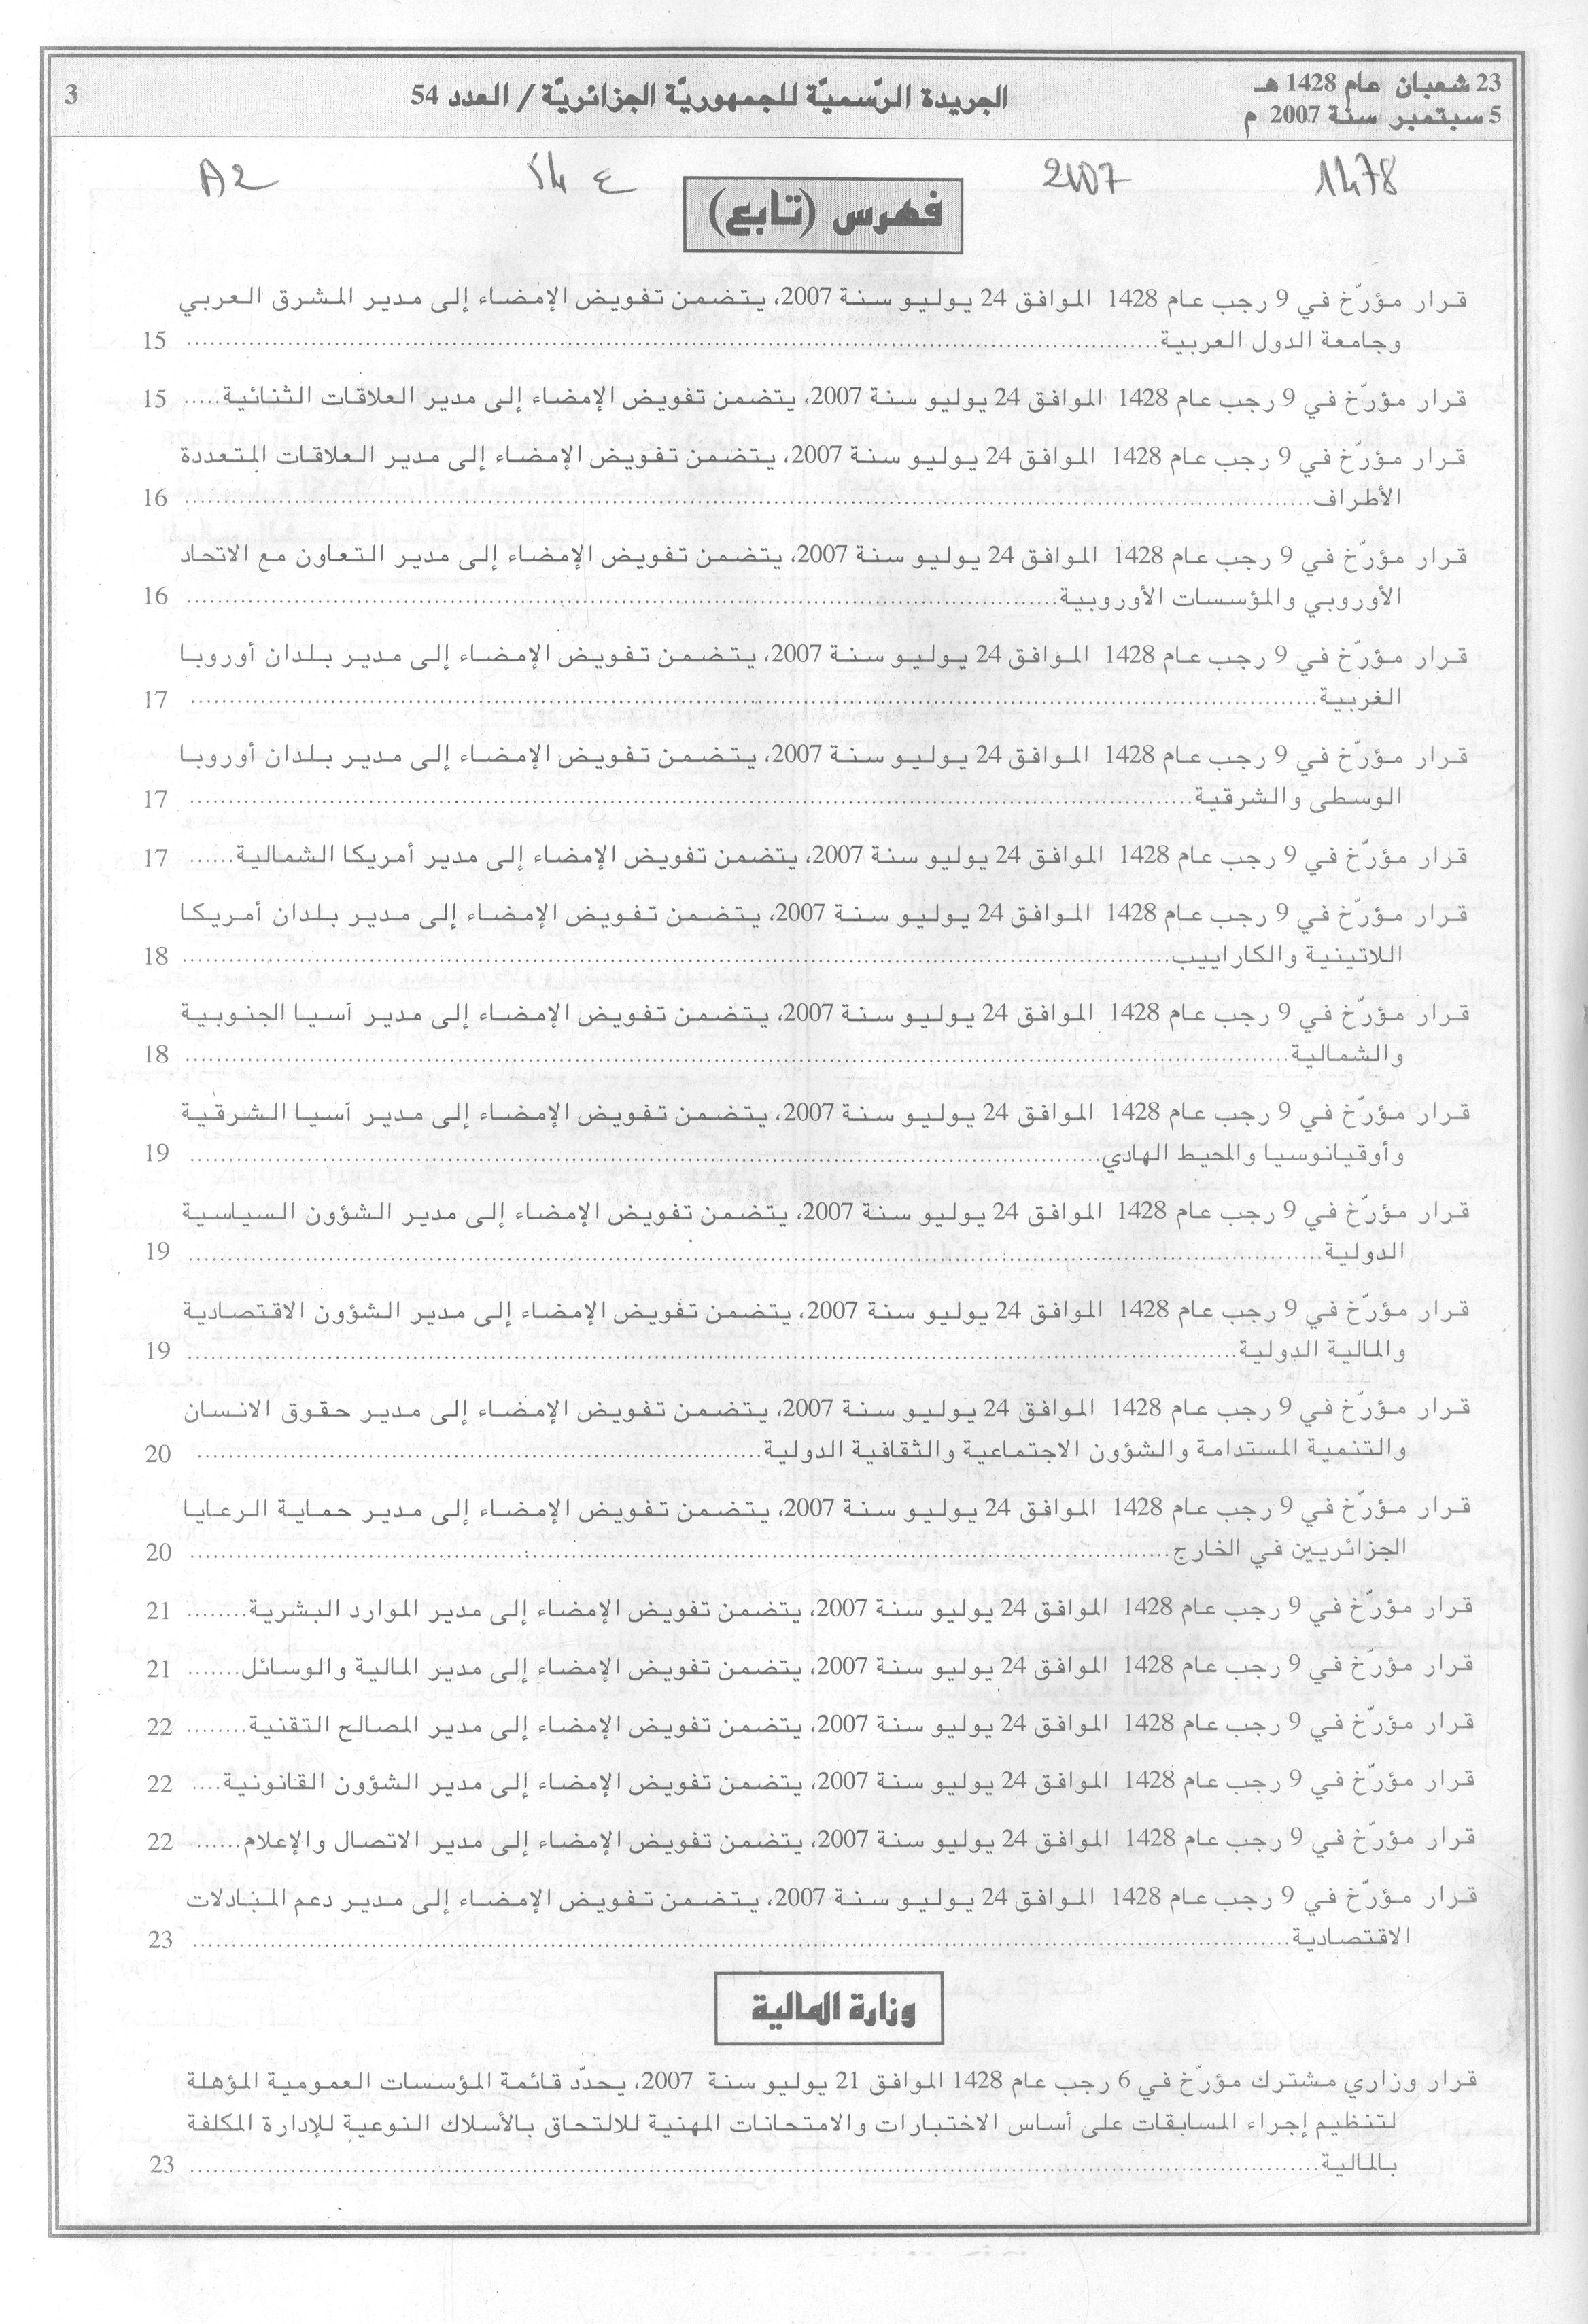 23 شعبان عام 1428 هـ
5 سبتمبر سنة 2007 م
الجريدة الرّسميّة للجمهوريّة الجزائريّة / العدد 54
3
1478 2007 54 ع A2
فهرس (تابع)
قرار مؤرّخ في 9 رجب عام 1428 الموافق 24 يوليو سنة 2007، يتضمن تفويض الإمضاء إلى مدير المشرق العربي
وجامعة الدول العربية........ 15
قرار مؤرّخ في 9 رجب عام 1428 الموافق 24 يوليو سنة 2007، يتضمن تفويض الإمضاء إلى مدير العلاقات الثنائية..... 15
قرار مؤرّخ في 9 رجب عام 1428 الموافق 24 يوليو سنة 2007، يتضمن تفويض الإمضاء إلى مدير العلاقات المتعددة
الأطراف........ 16
قرار مؤرّخ في 9 رجب عام 1428 الموافق 24 يوليو سنة 2007، يتضمن تفويض الإمضاء إلى مدير التعاون مع الاتحاد
الأوروبي والمؤسسات الأوروبية........ 16
قرار مؤرّخ في 9 رجب عام 1428 الموافق 24 يوليو سنة 2007، يتضمن تفويض الإمضاء إلى مدير بلدان أوروبا
الغربية........ 17
قرار مؤرّخ في 9 رجب عام 1428 الموافق 24 يوليو سنة 2007، يتضمن تفويض الإمضاء إلى مدير بلدان أوروبا
الوسطى والشرقية........ 17
قرار مؤرّخ في 9 رجب عام 1428 الموافق 24 يوليو سنة 2007، يتضمن تفويض الإمضاء إلى مدير أمريكا الشمالية...... 17
قرار مؤرّخ في 9 رجب عام 1428 الموافق 24 يوليو سنة 2007، يتضمن تفويض الإمضاء إلى مدير بلدان أمريكا
اللاتينية والكاراييب........ 18
قرار مؤرّخ في 9 رجب عام 1428 الموافق 24 يوليو سنة 2007، يتضمن تفويض الإمضاء إلى مدير آسيا الجنوبية
والشمالية........ 18
قرار مؤرّخ في 9 رجب عام 1428 الموافق 24 يوليو سنة 2007، يتضمن تفويض الإمضاء إلى مدير آسيا الشرقية
وأوقيانوسيا والمحيط الهادي........ 19
قرار مؤرّخ في 9 رجب عام 1428 الموافق 24 يوليو سنة 2007، يتضمن تفويض الإمضاء إلى مدير الشؤون السياسية
الدولية........ 19
قرار مؤرّخ في 9 رجب عام 1428 الموافق 24 يوليو سنة 2007، يتضمن تفويض الإمضاء إلى مدير الشؤون الاقتصادية
والمالية الدولية........ 19
قرار مؤرّخ في 9 رجب عام 1428 الموافق 24 يوليو سنة 2007، يتضمن تفويض الإمضاء إلى مدير حقوق الانسان
والتنمية المستدامة والشؤون الاجتماعية والثقافية الدولية........ 20
قرار مؤرّخ في 9 رجب عام 1428 الموافق 24 يوليو سنة 2007، يتضمن تفويض الإمضاء إلى مدير حماية الرعايا
الجزائريين في الخارج........ 20
قرار مؤرّخ في 9 رجب عام 1428 الموافق 24 يوليو سنة 2007، يتضمن تفويض الإمضاء إلى مدير الموارد البشرية........ 21
قرار مؤرّخ في 9 رجب عام 1428 الموافق 24 يوليو سنة 2007، يتضمن تفويض الإمضاء إلى مدير المالية والوسائل....... 21
قرار مؤرّخ في 9 رجب عام 1428 الموافق 24 يوليو سنة 2007، يتضمن تفويض الإمضاء إلى مدير المصالح التقنية........ 22
قرار مؤرّخ في 9 رجب عام 1428 الموافق 24 يوليو سنة 2007، يتضمن تفويض الإمضاء إلى مدير الشؤون القانونية.... 22
قرار مؤرّخ في 9 رجب عام 1428 الموافق 24 يوليو سنة 2007، يتضمن تفويض الإمضاء إلى مدير الاتصال والإعلام...... 22
قرار مؤرّخ في 9 رجب عام 1428 الموافق 24 يوليو سنة 2007، يتضمن تفويض الإمضاء إلى مدير دعم المبادلات
الاقتصادية........ 23
وزارة المالية
قرار وزاري مشترك مؤرّخ في 6 رجب عام 1428 الموافق 21 يوليو سنة 2007، يحدّد قائمة المؤسسات العمومية المؤهلة
لتنظيم إجراء المسابقات على أساس الاختبارات والامتحانات المهنية للالتحاق بالأسلاك النوعية للإدارة المكلفة
بالمالية........ 23